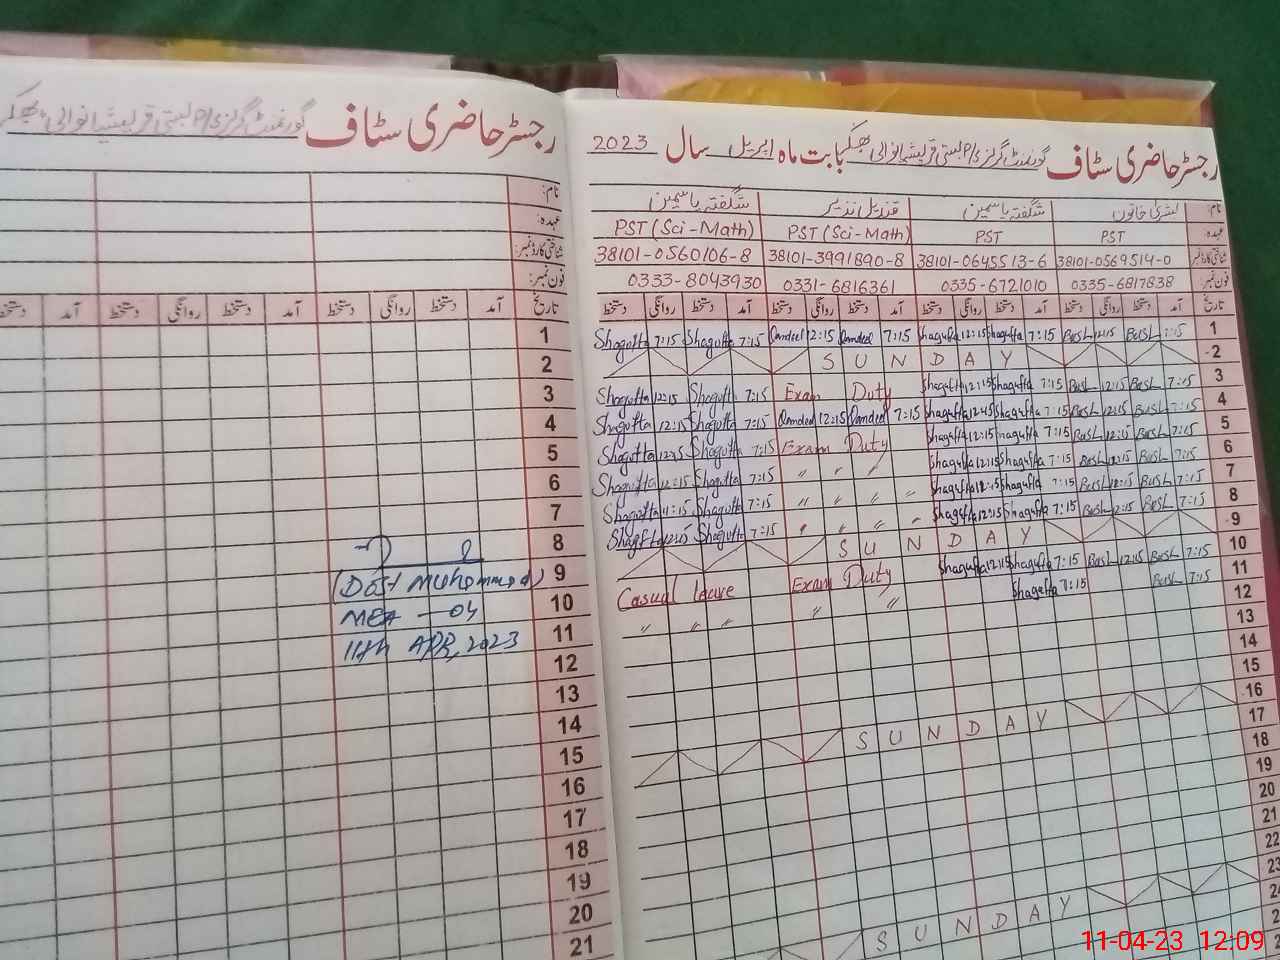 رجسٹر حاضری سٹاف گورنمنٹ گرلز P/S بستی قریشیانوالی بھکر
نام:
عہدہ:
شناختی کارڈ نمبر:
فون نمبر:
تاریخ آمد دستخط روانگی دستخط آمد دستخط روانگی دستخط آمد دستخط
1
2
3
4
5
6
7
8
9
10
11
12
13
14
15
16
17
18
19
20
21
(Dost Muhammad)
MEA - 04
11th APR, 2023
رجسٹر حاضری سٹاف گورنمنٹ گرلز P/S بستی قریشیانوالی بھکر بابت ماہ اپریل سال 2023
نام: بشریٰ خاتون شگفتہ یاسمین قندیل نذیر شگفتہ یاسمین
عہدہ: PST PST PST (Sci-Math) PST (Sci-Math)
شناختی کارڈ نمبر 38101-0569514-0 38101-0645513-6 38101-3991890-8 38101-0560106-8
فون نمبر: 0335-6817838 0335-6721010 0331-6816361 0333-8043930
تاریخ آمد دستخط روانگی دستخط آمد دستخط روانگی دستخط آمد دستخط روانگی دستخط آمد دستخط روانگی دستخط
Shagufta 7:15 Shagufta 7:15 Qandeel 12:15 Qandeel 7:15 Shagufta 12:15 Shagufta 7:15 12:15 7:15 1
SUNDAY 2
Shagufta 12:15 Shagufta 7:15 Exam Duty Shagufta 12:15 Shagufta 7:15 12:15 7:15 3
Shagufta 12:15 Shagufta 7:15 Qandeel 12:15 Qandeel 7:15 Shagufta 12:15 Shagufta 7:15 12:15 7:15 4
Shagufta 12:15 Shagufta 7:15 Exam Duty Shagufta 12:15 Shagufta 7:15 12:15 7:15 5
Shagufta 12:15 Shagufta 7:15 " " " Shagufta 12:15 Shagufta 7:15 12:15 7:15 6
Shagufta 11:15 Shagufta 7:15 " " " " Shagufta 12:15 Shagufta 7:15 12:15 7:15 7
Shagufta 12:15 Shagufta 7:15 " " " " Shagufta 12:15 Shagufta 7:15 12:15 7:15 8
SUNDAY 9
Casual leave Exam Duty Shagufta 12:15 Shagufta 7:15 12:15 7:15 10
" " " " " Shagufta 7:15 7:15 11
12
13
14
15
SUNDAY 16
17
18
19
20
21
22
SUNDAY 23
11-04-23 12:09